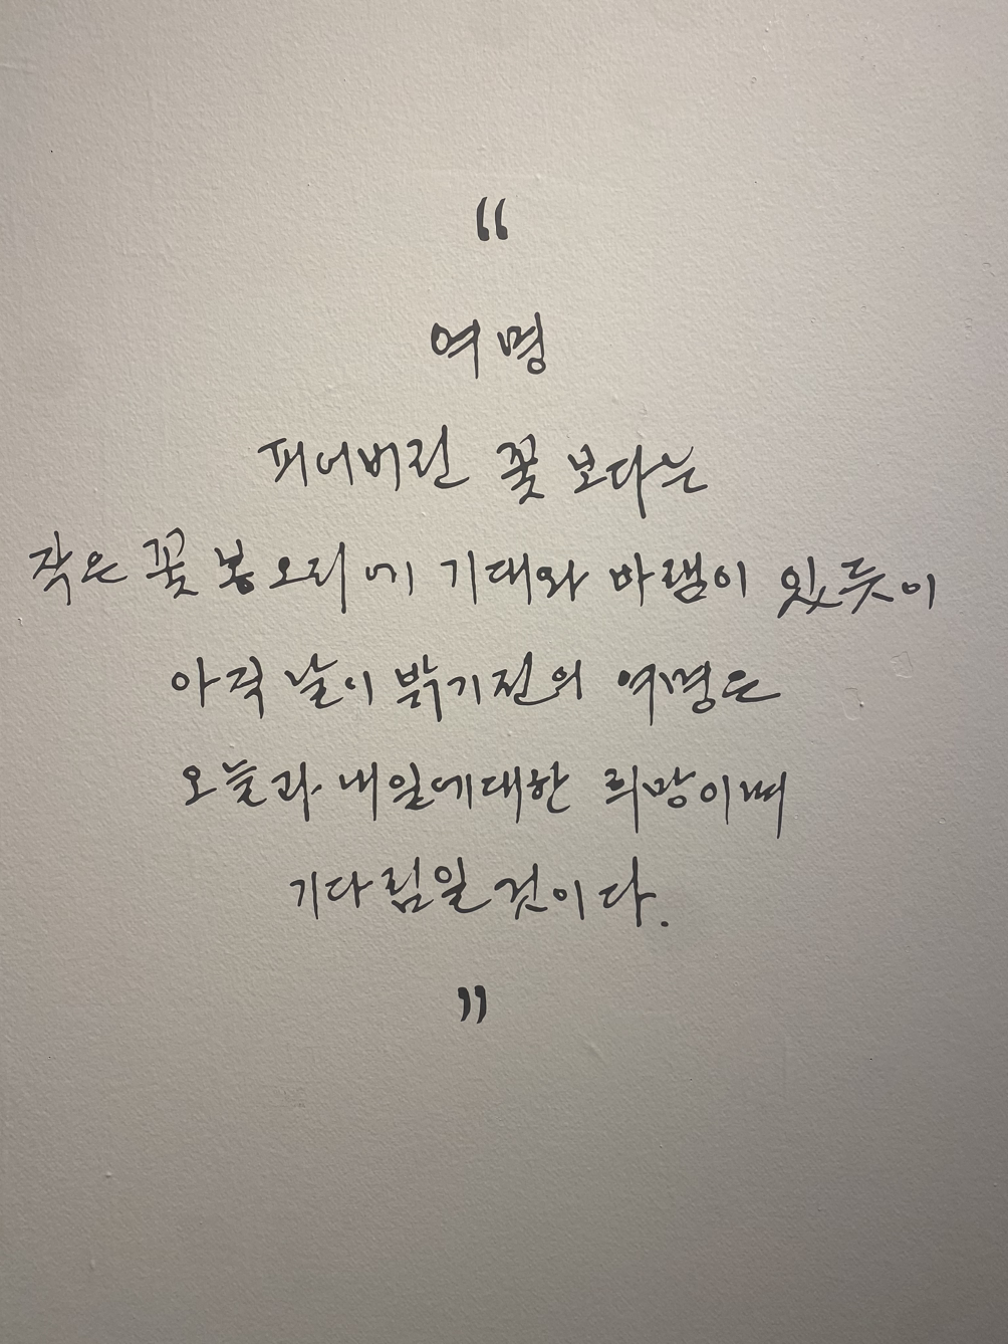 “
여명
피어버린 꽃 보다는
작은 꽃 봉오리에 기대와 바램이 있듯이
아직 날이 밝기전의 여명은
오늘과 내일에대한 희망이며
기다림일 것이다.
”